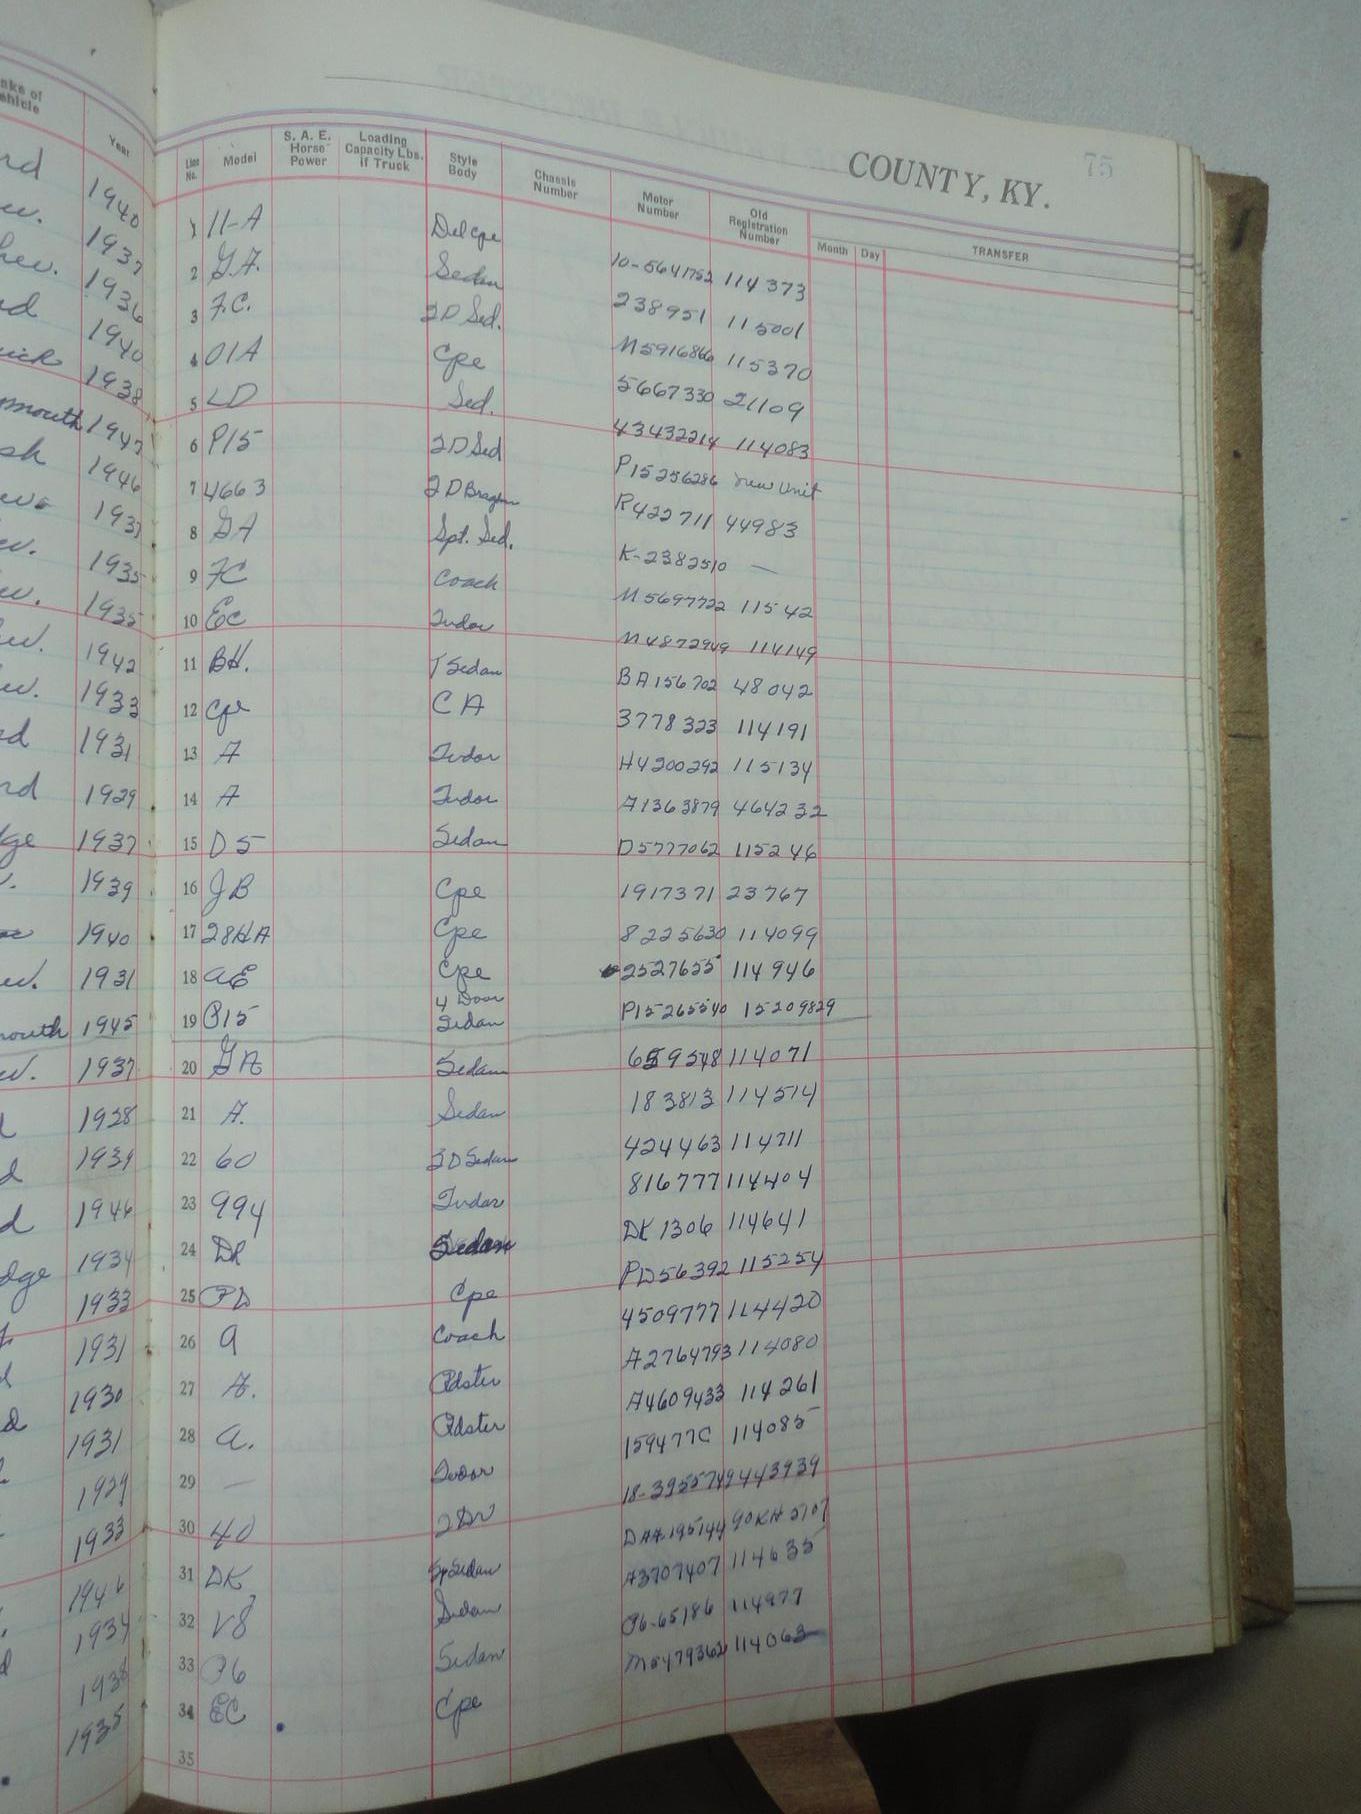 COUNTY, KY. 75
Year Line No. Model S. A. E. Horse Power Loading Capacity Lbs. if Truck Style Body Chassis Number Motor Number Old Registration Number Month Day TRANSFER
1940 1 11-A Del cpe 10-5641752 114373
1937 2 GA. Sedan 238951 115001
1936 3 F.C. 2D Sed. M5916866 115370
1940 4 01A Cpe 5667330 21109
1938 5 LD Sed. 43432214 114083
mouth 1947 6 P15 2D Sed P15256286 new unit
1946 7 4663 2D R422711 44983
1937 8 GA Spt. Sed. K-2382510 —
1935 9 FC Coach M5697722 11542
1935 10 EC Tudor M4872949 114149
1942 11 BH. T Sedan BA156702 48042
1933 12 Cpe CA 3778323 114191
1931 13 A Tudor A4200292 115134
1929 14 A Tudor A1363879 464232
1937 15 D5 Sedan D5777062 115246
1939 16 JB Cpe 1917371 23767
1940 17 28HA Cpe 8225630 114099
1931 18 AE Cpe 2527655 114946
mouth 1945 19 P15 4 Door Sedan P15265540 15209829
1937 20 GA Sedan 659548 114071
1928 21 A. Sedan 183813 114514
1939 22 60 2D Sedan 424463 114711
1946 23 994 Tudor 816777 114404
1934 24 DR Sedan DK1306 114641
1933 25 PD Cpe PD56392 115254
1931 26 A Coach 4509777 114420
1930 27 A. Rdster A2764793 114080
1931 28 A. Rdster A4609433 114261
1929 29 — Tudor 159477C 114085
1933 30 40 2Dr 18-3955749 443939
1946 31 DK Sp Sedan
1934 32 V8 Sedan A3707407 114635
1938 33 P6 Sedan P6-65186 114977
1935 34 EC Cpe M5479362 114063
35